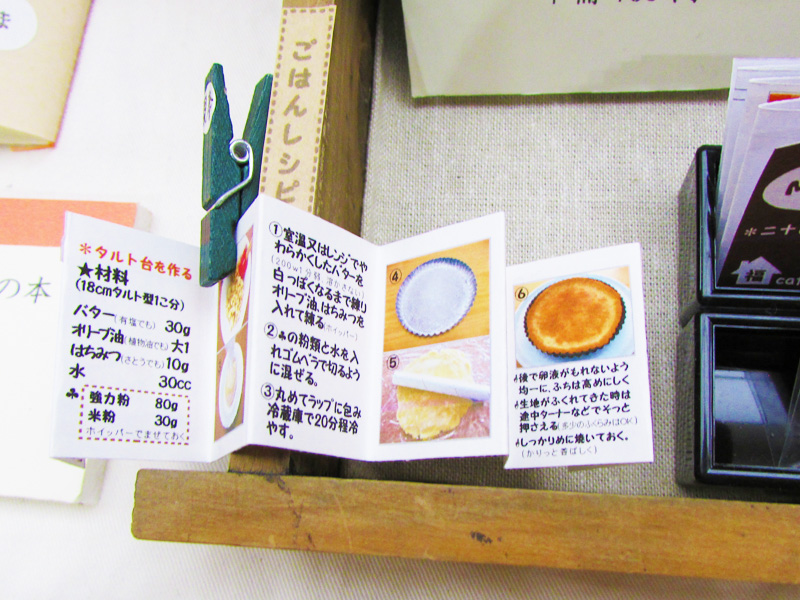 ま
の本
ごはんレシピ
*タルト台を作る
★材料
(18cmタルト型1こ分)
バター(有塩でも) 30g
オリーブ油(植物油でも)大1
はちみつ(さとうでも)10g
水 30cc
♣ 強力粉 80g
米粉 30g
ホイッパーでまぜておく
①室温又はレンジでや
わらかくしたバターを
(200w1分弱 溶かさない)
白っぽくなるまで練り
オリーブ油、はちみつを
入れて練る(ホイッパー)
②♣の粉類と水を入
れゴムベラで切るよう
に混ぜる。
③丸めてラップに包み
冷蔵庫で20分程冷
やす。
④
⑤
⑥
後で卵液がもれないよう
均一に、ふちは高めにしく
生地がふくれてきた時は
途中ターナーなどでそっと
押さえる(多少のふくらみはOK)
しっかりめに焼いておく。
(かりっと香ばしく)
*二十
福
cafe